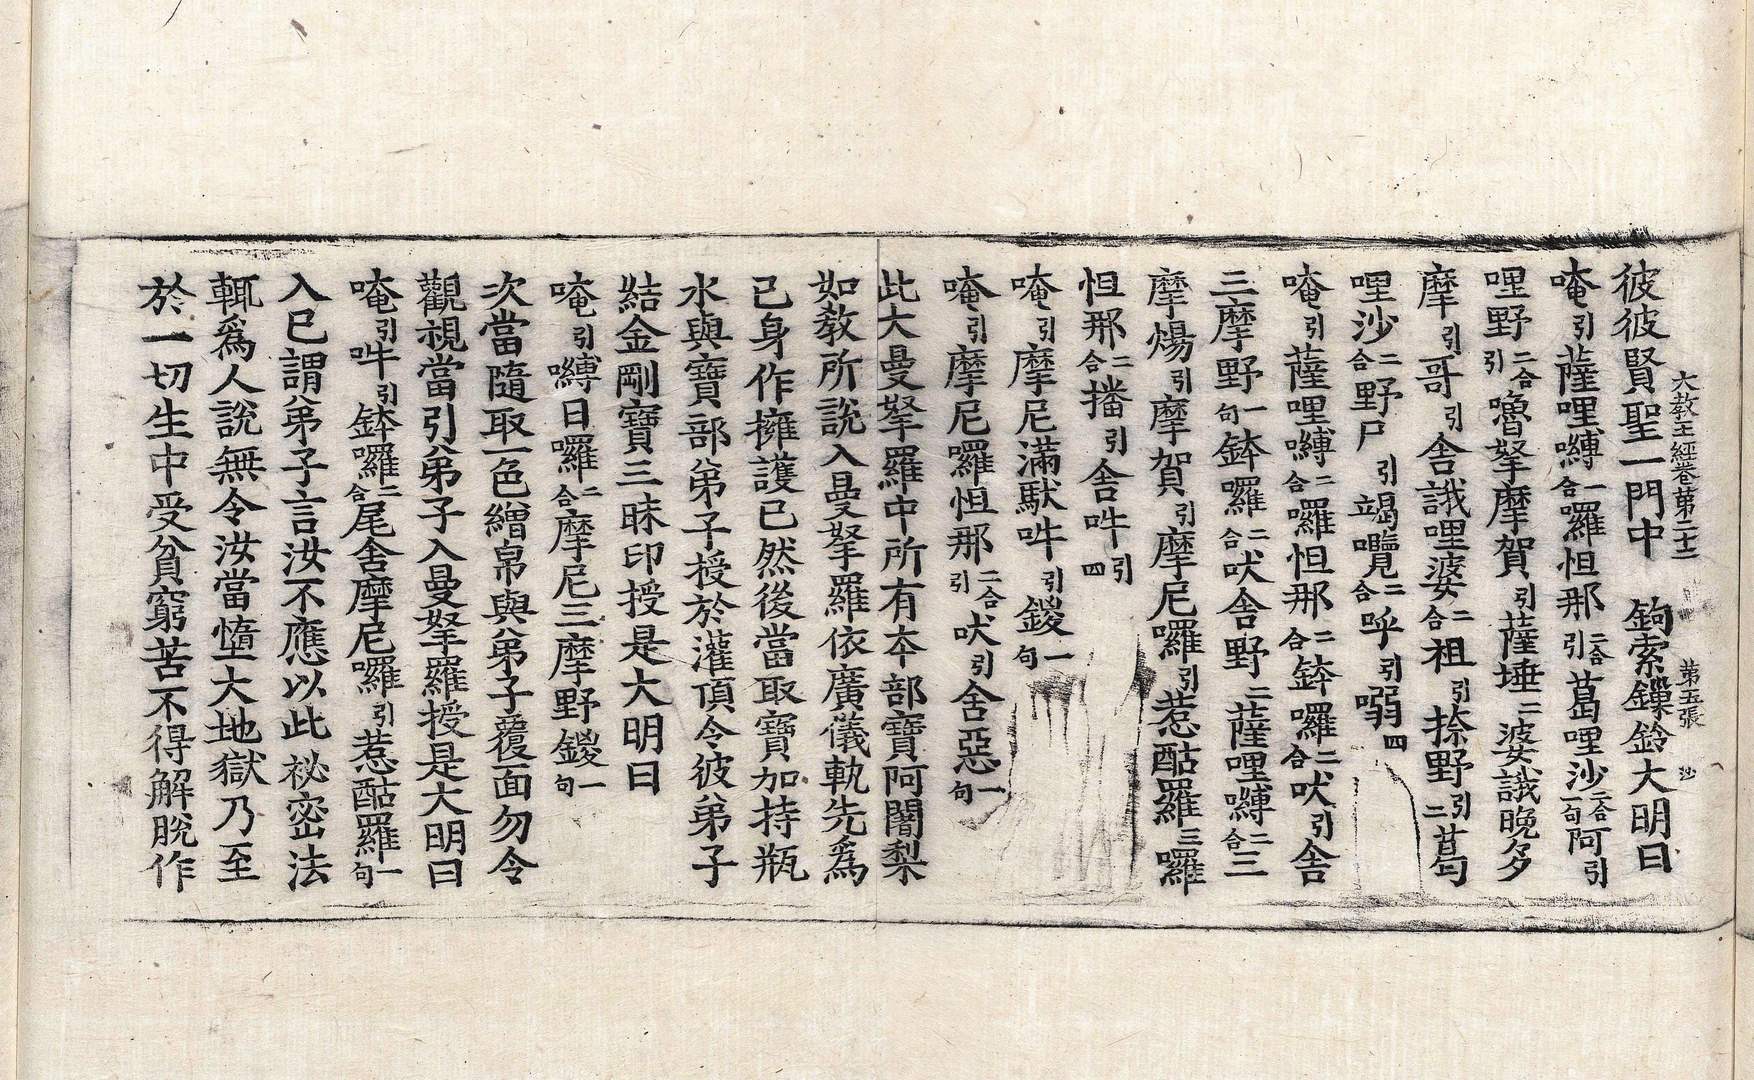 大教王經卷第二十二　第五張　沙
彼彼賢聖一門中　鉤索鏁鈴大明曰
唵引薩哩嚩二合囉怛那二合引葛哩沙二合句一阿引
哩野二合引嚕拏摩賀引薩埵二婆誐晩多
摩引哥引舍誐哩婆二合祖引捺野引二葛
哩沙二合野尸引竭囕二合呼引嚩四
唵引薩哩嚩二合囉怛那二合鉢囉二合吠引舍
三摩野一句鉢囉二合吠舍野二薩哩嚩二合三
摩煬引摩賀引摩尼囉引惹酤羅三囉
怛那二合播引舍吽引四
唵引摩尼滿馱吽引鍐一句
唵引摩尼囉怛那二合引吠引舍惡一句
此大曼拏羅中所有本部寶阿闍梨
如教所說入曼拏羅依廣儀軌先爲
己身作擁護已然後當取寶加持瓶
水與寶部弟子授於灌頂令彼弟子
結金剛寶三昧印授是大明曰
唵引嚩日囉二合摩尼三摩野鍐一句
次當隨取一色繒帛與弟子覆面勿令
觀視當引弟子入曼拏羅授是大明曰
唵引吽引鉢囉二合尾舍摩尼囉引惹酤羅一句
入已謂弟子言汝不應以此祕密法
輒爲人說無令汝當墮大地獄乃至
於一切生中受貧窮苦不得解脫作